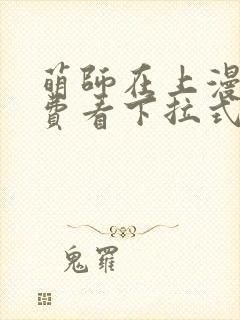 萌師在上漫
費看下拉式
鬼羅